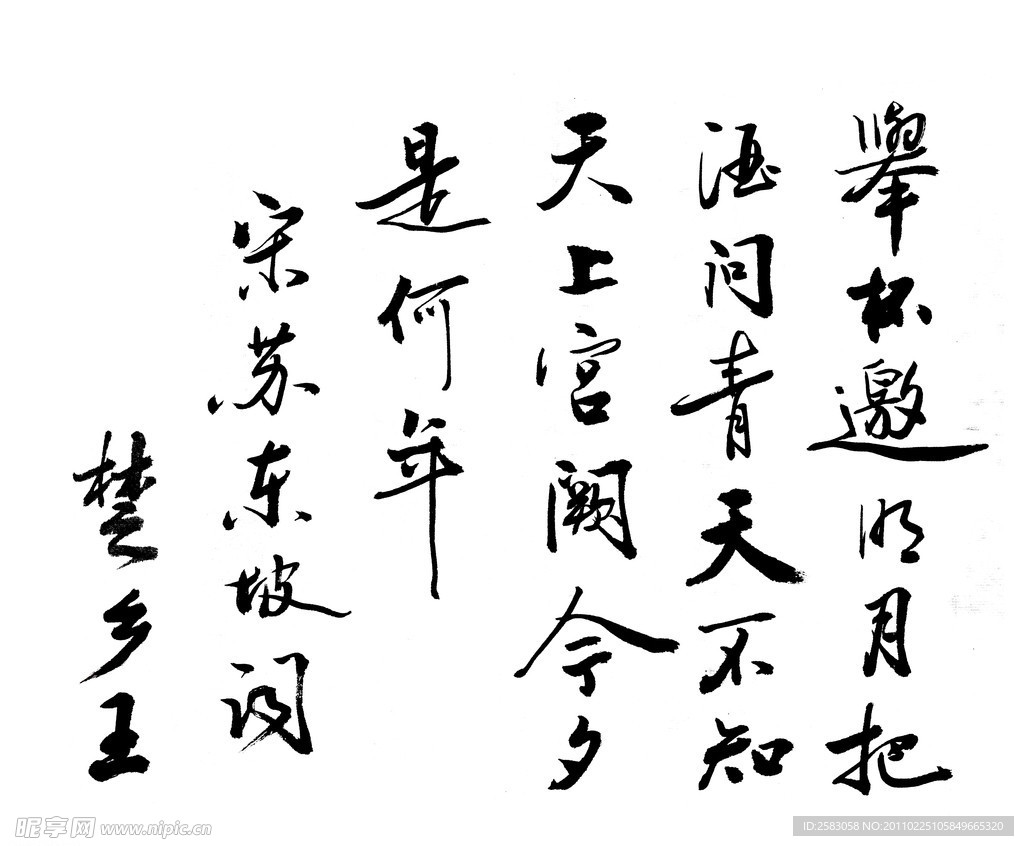 舉杯邀明月把
酒问青天不知
天上宫阙今夕
是何年
宋苏东坡词
楚乡王
昵享网 www.nipic.cn
ID:2583058 NO:20110225105849665320